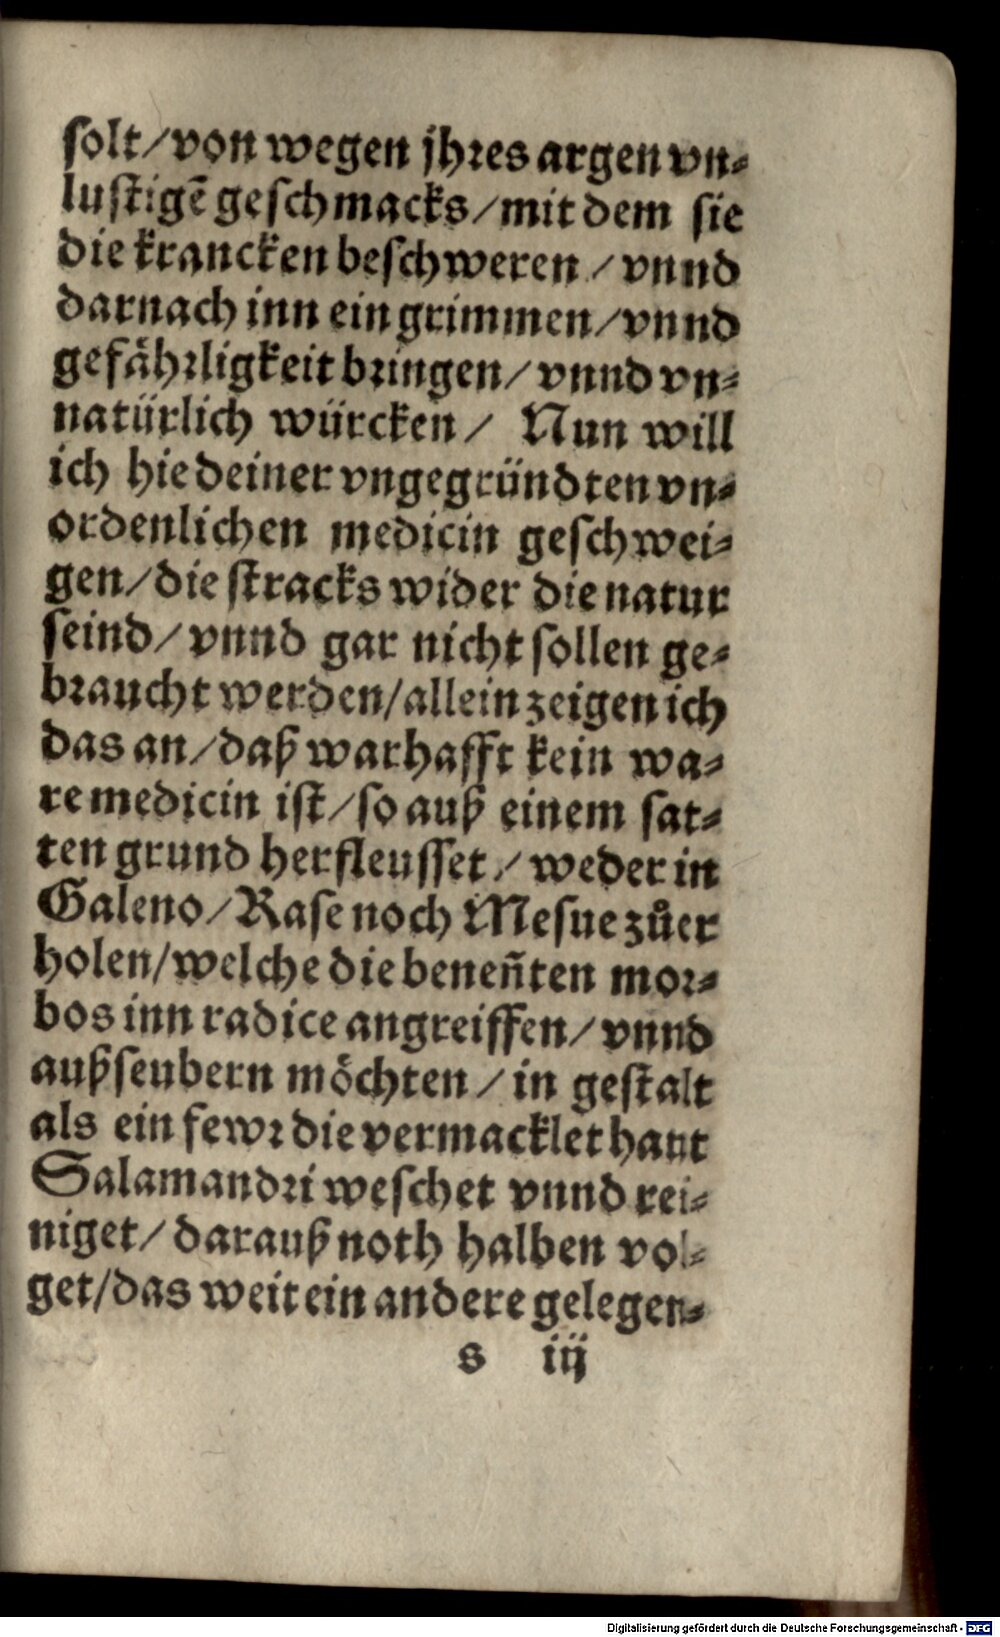 solt/von wegen jhres argen vn-
lustigē geschmacks/mit dem sie
die krancken beschweren/vnnd
darnach inn ein grimmen/vnnd
gefährligkeit bringen/vnnd vn-
natürlich würcken/ Nun will
ich hie deiner vngegründten vn-
ordenlichen medicin geschwei-
gen/die stracks wider die natur
seind/vnnd gar nicht sollen ge-
braucht werden/allein zeigen ich
das an/daß warhafft kein wa-
re medicin ist/so auß einem sat-
ten grund herfleusset/weder in
Galeno/Rase noch Mesue zůer
holen/welche die beneñten mor-
bos inn radice angreiffen/vnnd
außseubern möchten/in gestalt
als ein fewr die vermacklet haut
Salamandri weschet vnnd rei-
niget/darauß noth halben vol-
get/das weit ein andere gelegen-
s iij
Digitalisierung gefördert durch die Deutsche Forschungsgemeinschaft - DFG